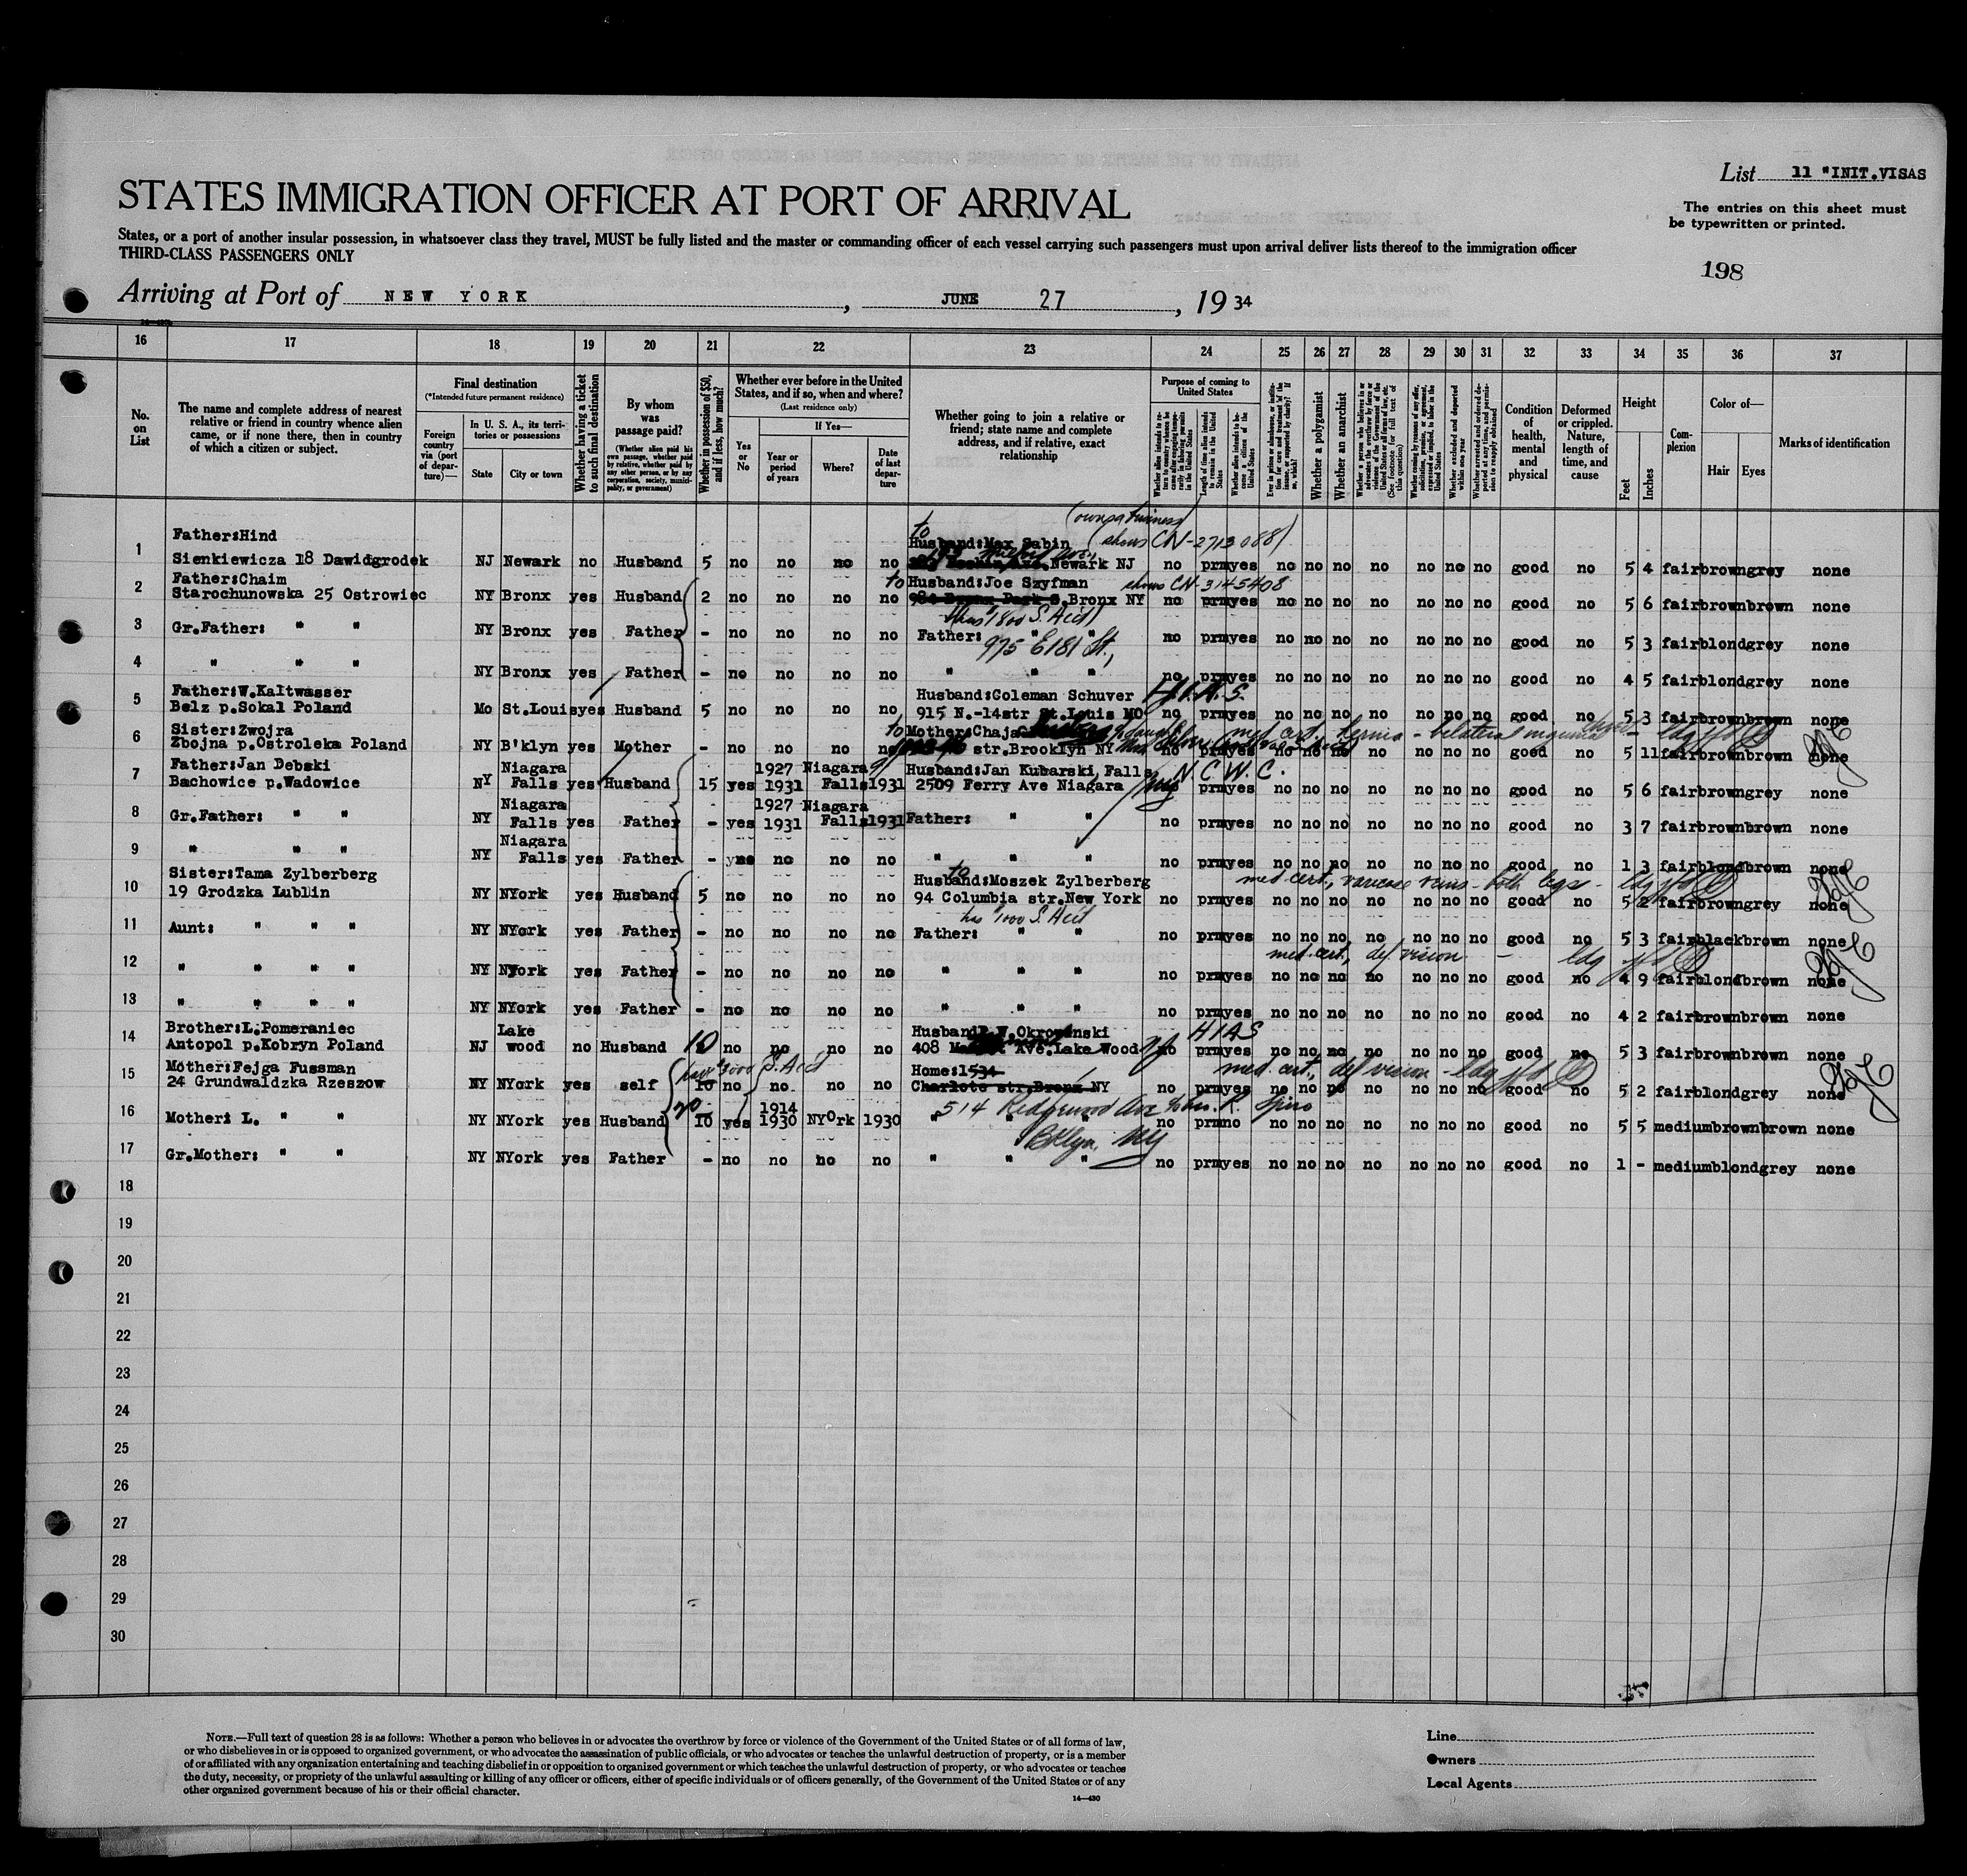 List 11 "INIT.VISAS
STATES IMMIGRATION OFFICER AT PORT OF ARRIVAL
The entries on this sheet must
be typewritten or printed.
States, or a port of another insular possession, in whatsoever class they travel, MUST be fully listed and the master or commanding officer of each vessel carrying such passengers must upon arrival deliver lists thereof to the immigration officer
THIRD-CLASS PASSENGERS ONLY
198
Arriving at Port of NEW YORK, JUNE 27, 19 34
16 17 18 19 20 21 22 23 24 25 26 27 28 29 30 31 32 33 34 35 36 37
No. on List
The name and complete address of nearest relative or friend in country whence alien came, or if none there, then in country of which a citizen or subject.
Final destination
(*Intended future permanent residence)
Foreign country via (port of departure)—
In U. S. A., its territories or possessions
State
City or town
Whether having a ticket to such final destination
By whom was passage paid?
(Whether alien paid his own passage, whether paid by relative, whether paid by any other person, or by any corporation, society, municipality, or government)
Whether in possession of $50, and if less, how much?
Whether ever before in the United States, and if so, when and where?
(Last residence only)
Yes or No
If Yes—
Year or period of years
Where?
Date of last departure
Whether going to join a relative or friend; state name and complete address, and if relative, exact relationship
Purpose of coming to United States
Length of time alien intends to remain in the United States
Whether alien intends to become a citizen of the United States
Whether a polygamist
Whether an anarchist
Whether excluded and deported within one year
Condition of health, mental and physical
Deformed or crippled. Nature, length of time, and cause
Height
Feet
Inches
Complexion
Color of—
Hair
Eyes
Marks of identification
(owns a business
to (shows CN-2713088)
1 Father:Hind Husband:Max Sabin
Sienkiewicza 18 Dawidgrodek NJ Newark no Husband 5 no no no no Newark NJ no prm yes no no no no no no no good no 5 4 fair brown grey none
2 Father:Chaim to Husband:Joe Szyfman shows CN-3145408
Starochunowska 25 Ostrowiec NY Bronx yes Husband 2 no no no no 984 Bronx Park S.Bronx NY no prm yes no no no no no no no good no 5 6 fair brown brown none
(has $1800 S. Acct)
3 Gr.Father: " " NY Bronx yes Father - no no no no Father: " " no prm yes no no no no no no no good no 5 3 fair blond grey none
975 E 181 St.,
4 " " " NY Bronx yes Father - no no no no " " " no prm yes no no no no no no no good no 4 5 fair blond grey none
5 Father:W.Kaltwasser Husband:Coleman Schuver H.I.A.S.
Belz p.Sokal Poland Mo St.Louis yes Husband 5 no no no no 915 N.-14str St.Louis MO no prm yes no no no no no no no good no 5 3 fair brown brown none
6 Sister:Zwojra to Mother:Chaja med cert. hernia - bilateral inguinal
Zbojna p.Ostroleka Poland NY B'klyn yes Mother - no no no no str.Brooklyn NY no prm yes no no no no no no no good no 5 11 fair brown brown none
7 Father:Jan Debski Niagara 1927 Niagara Husband:Jan Kubarski,Falls N.C.W.C.
Bachowice p.Wadowice NY Falls yes Husband 15 yes 1931 Falls 1931 2509 Ferry Ave Niagara prm yes no no no no no no no good no 5 6 fair brown grey none
8 Niagara 1927 Niagara
Gr.Father: " " NY Falls yes Father - yes 1931 Falls 1931 Father: " " no prm yes no no no no no no no good no 3 7 fair brown brown none
9 Niagara
" " " NY Falls yes Father - no no no " " " no prm yes no no no no no no no good no 1 3 fair blond brown none
10 Sister:Tama Zylberberg to Husband:Moszek Zylberberg med cert., varicose veins - both legs -
19 Grodzka Lublin NY NYork yes Husband 5 no no no no 94 Columbia str.New York no prm yes no no no no no no no good no 5 2 fair brown grey none
has $1000 S. Acct
11 Aunt: " " " NY NYork yes Father - no no no no Father: " " no prm yes no no no no no no no good no 5 3 fair black brown none
med. cert., def vision -
12 " " " " NY NYork yes Father - no no no no " " " no prm yes no no no no no no no good no 4 9 fair blond brown none
13 " " " " NY NYork yes Father - no no no no " " " no prm yes no no no no no no no good no 4 2 fair brown brown none
14 Brother:L.Pomeraniec Lake HIAS
Antopol p.Kobryn Poland NJ wood no Husband 10 no no no no 408 Ave.Lake Wood prm yes no no no no no no no good no 5 3 fair brown brown none
15 Mother:Fejga Fussman have $3000 S. Acct Home:1534 med cert., def vision -
24 Grundwaldzka Rzeszow NY NYork yes self 10 no no no no Charlote str.Bronx NY no prm yes no no no no no no no good no 5 2 fair blond grey none
16 20 1914 514 Ave
Mother: L. " " NY NYork yes Husband 10 yes 1930 NYOrk 1930 " " " no prm no no no no no no no no good no 5 5 medium brown brown none
Bklyn, NY
17 Gr.Mother: " " NY NYork yes Father - no no no no " " " no prm yes no no no no no no no good no 1 - medium blond grey none
18
19
20
21
22
23
24
25
26
27
28
29
30
NOTE.—Full text of question 28 is as follows: Whether a person who believes in or advocates the overthrow by force or violence of the Government of the United States or of all forms of law,
or who disbelieves in or is opposed to organized government, or who advocates the assassination of public officials, or who advocates or teaches the unlawful destruction of property, or is a member
of or affiliated with any organization entertaining and teaching disbelief in or opposition to organized government or which teaches the unlawful destruction of property, or who advocates or teaches
the duty, necessity, or propriety of the unlawful assaulting or killing of any officer or officers, either of specific individuals or of officers generally, of the Government of the United States or of any
other organized government because of his or their official character.
14—430
Line
Owners
Local Agents